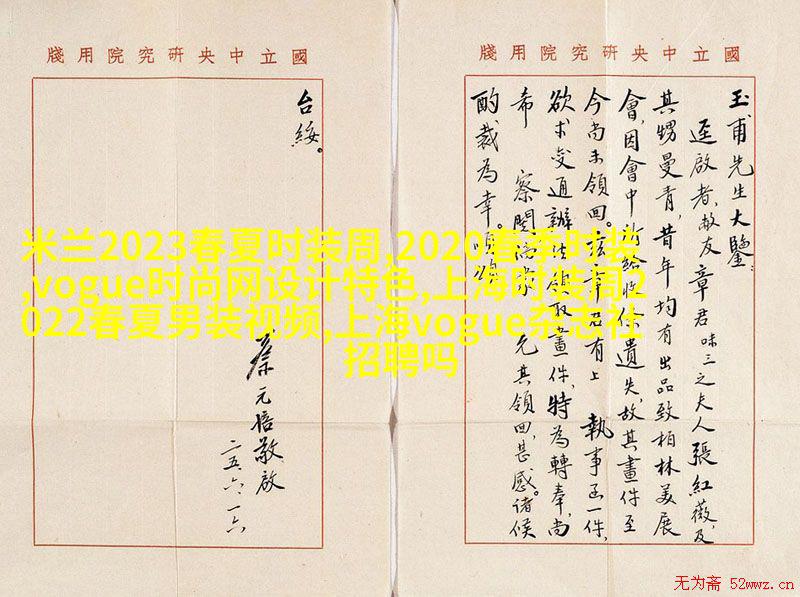 國立中央研究院用牋
玉甫先生大鑒：
逕啟者，敝友章君味三之夫人張紅薇，及
其甥曼青，昔年均有出品致柏林美展
會，因會中所給收條遺失，故其畫件至
今尚未領回。茲章君有上 執事函一件，
欲求變通辦法 取畫件，特為轉奉，尚
希 察閱 允其領回，甚感。諸候
酌裁為幸。順頌
國立中央研究院用牋
台綏。
蔡元培敬啟
二五、六、一六
米兰2023春夏时装周,2020春季时装
,vogue时尚网设计特色,上海时装周2
022春夏男装视频,上海vogue杂志社
招聘吗
无为斋 52wwz.cn